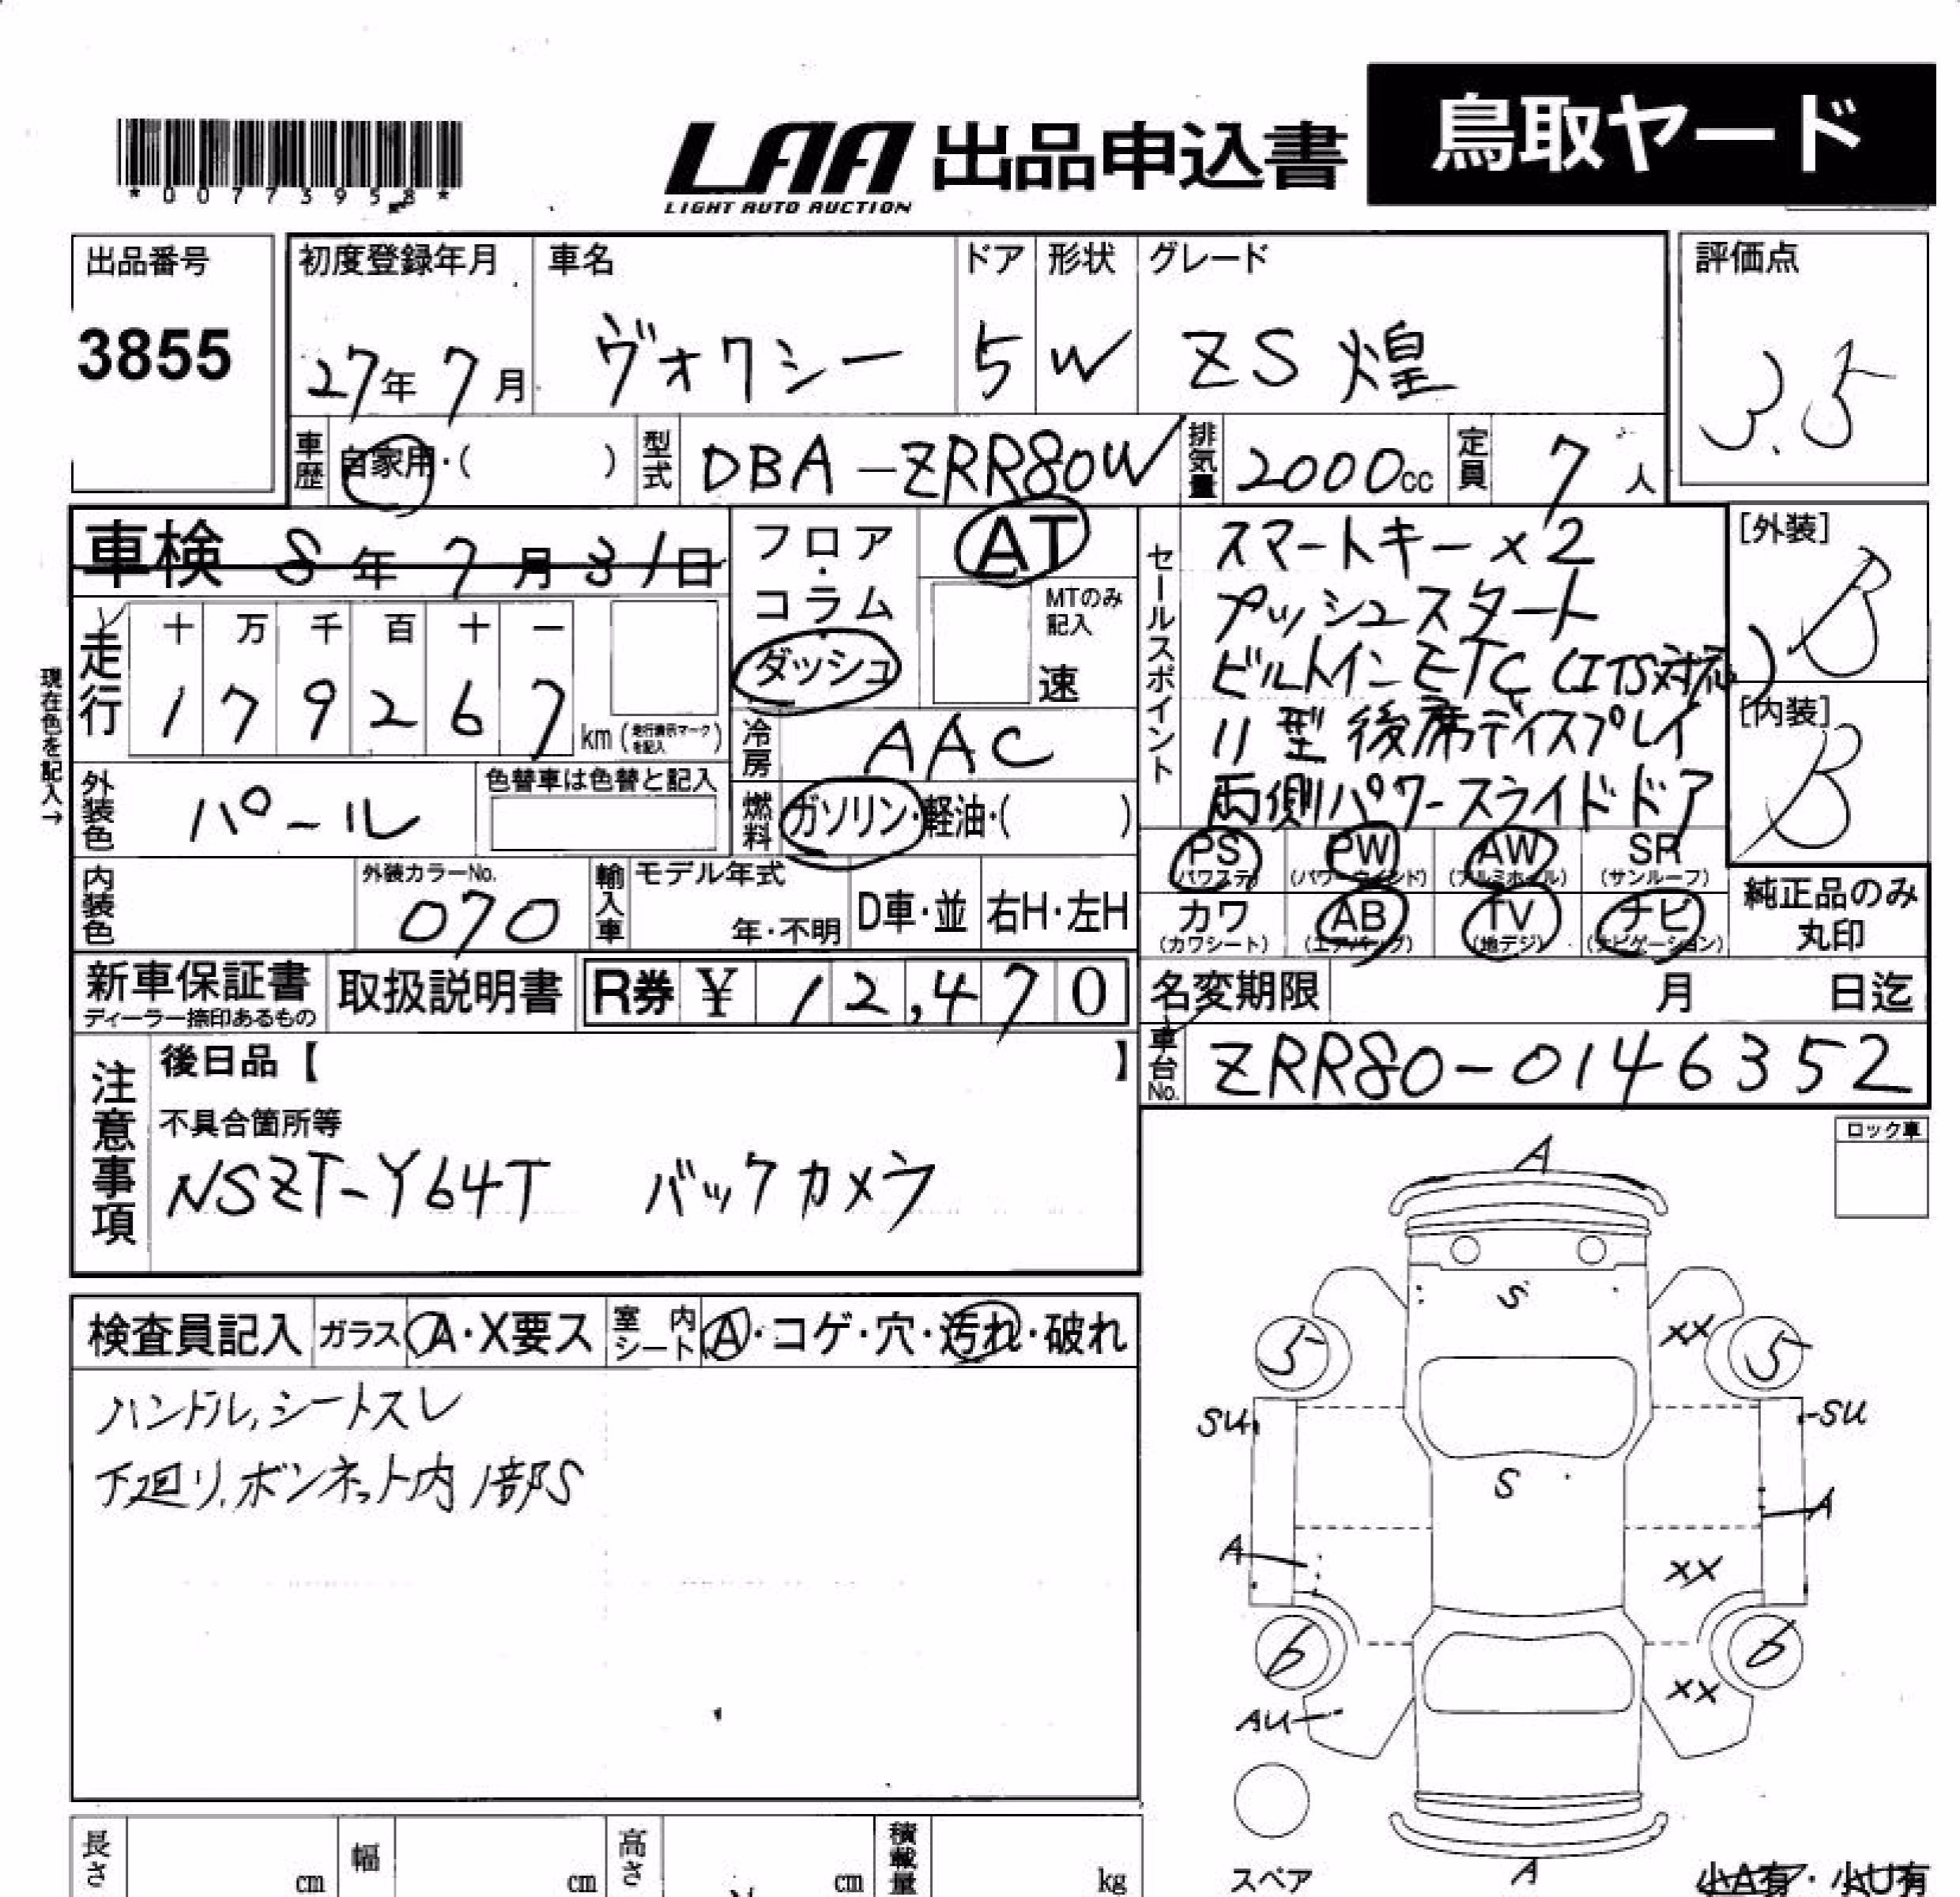 *00773958*
LAA 出品申込書 鳥取ヤード
LIGHT AUTO AUCTION
出品番号 3855
初度登録年月 27年7月
車名 ヴォクシー
ドア 5
形状 W
グレード ZS 煌
評価点 3.5
車歴 自家用・( )
型式 DBA-ZRR80W
排気量 2000cc
定員 7人
車検 8年7月31日
走行 十万千百十一
179267 km (走行表示マークを記入)
現在色を記入→
フロア・コラム ダッシュ
AT
MTのみ記入 速
冷房 AAC
燃料 ガソリン・軽油・( )
セールスポイント
スマートキー×2
プッシュスタート
ビルトインETC(ITS対応)
11型後席ディスプレイ
両側パワースライドドア
[外装] B
[内装] B
外装色 パール
色替車は色替と記入
内装色
外装カラーNo. 070
輸入車 モデル年式 年・不明 D車・並 右H・左H
PS (パワステ) PW (パワーウインド) AW (アルミホイール) SR (サンルーフ)
カワ (カワシート) AB (エアバッグ) TV (地デジ) ナビ (ナビゲーション)
純正品のみ丸印
新車保証書 ディーラー捺印あるもの
取扱説明書
R券 ¥ 12,470
名変期限 月 日迄
車台No. ZRR80-0146352
注意事項
後日品【 】
不具合箇所等
NSZT-Y64T バックカメラ
ロック車
検査員記入 ガラス A・X要ス 室内シート A・コゲ・穴・汚れ・破れ
ハンドル,シートスレ
下廻り,ボンネット内1部S
A
S
XX
5 5
SU SU
S
A
A
XX
6 6
XX
AU
A
スペア
小A有・小U有
長さ cm 幅 cm 高さ cm 積載量 kg